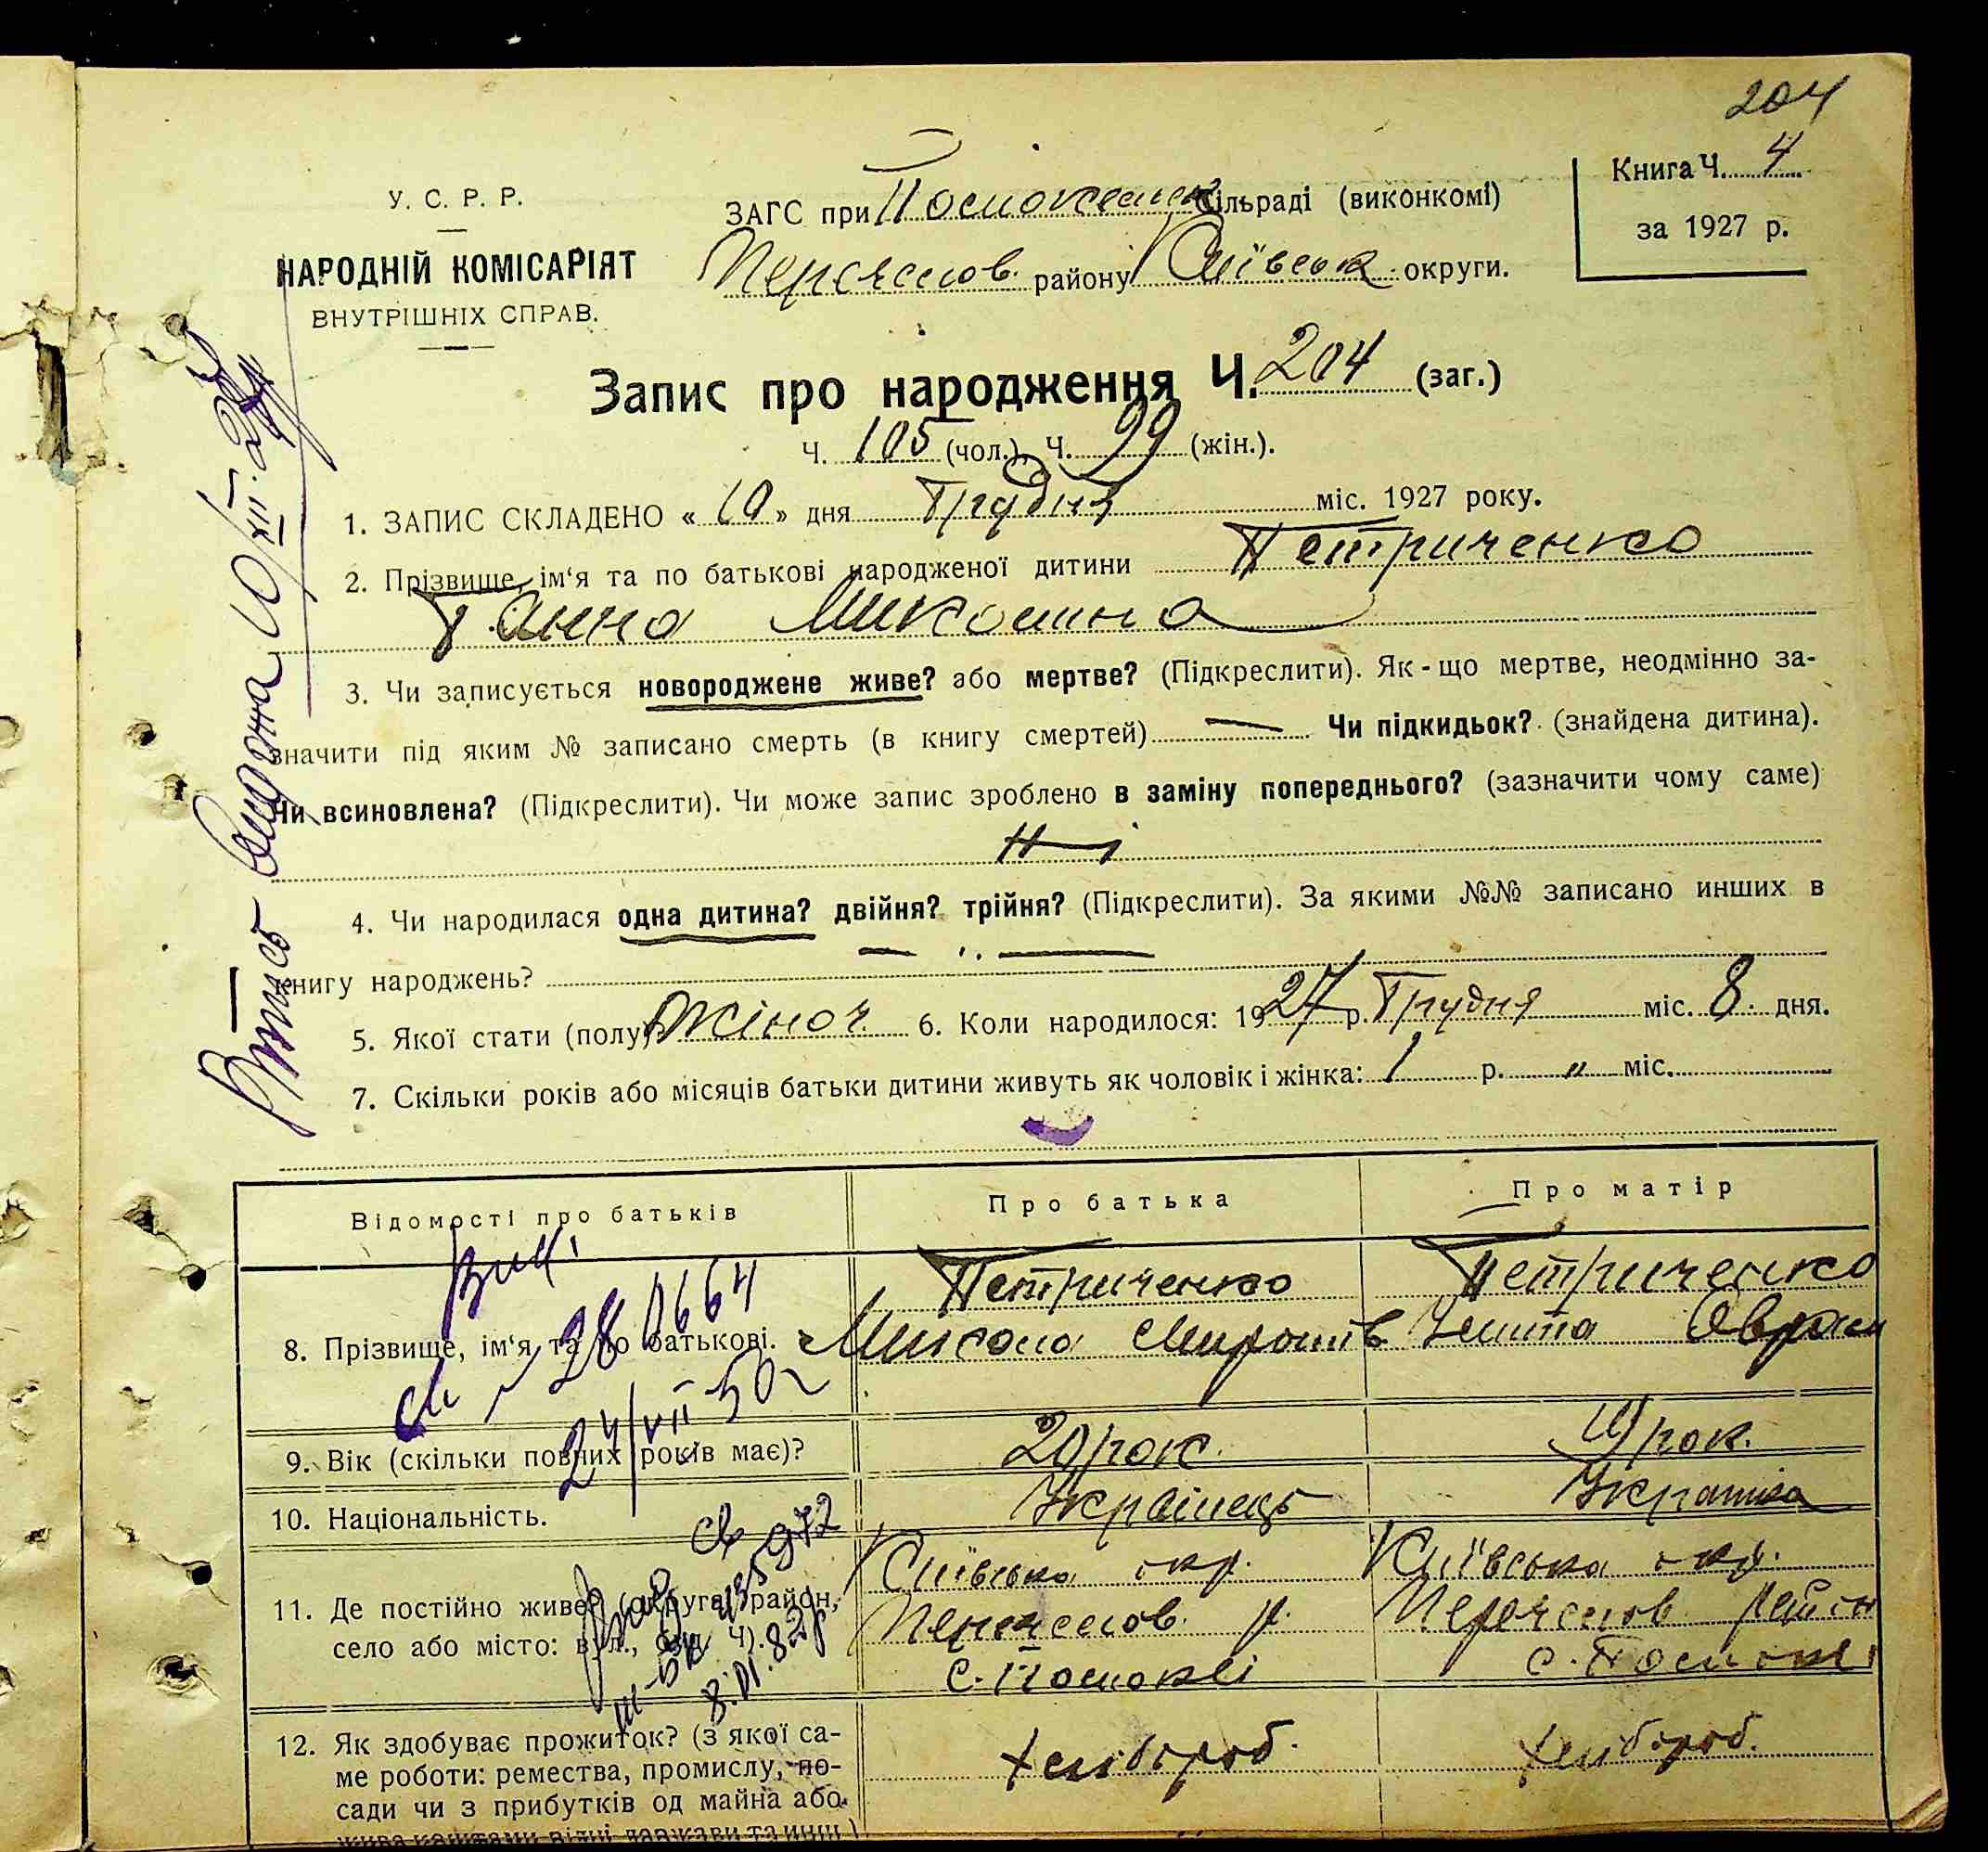 204
У. С. Р. Р.
НАРОДНІЙ КОМІСАРІЯТ
ВНУТРІШНІХ СПРАВ.
ЗАГС при сільраді (виконкомі)
Переяслов. району Київськ. округи.
Книга Ч. 4
за 1927 р.
Запис про народження Ч. 204 (заг.)
Ч. 105 (чол.), Ч. 99 (жін.).
1. ЗАПИС СКЛАДЕНО « 10 » дня Грудня міс. 1927 року.
2. Прізвище, ім'я та по батькові народженої дитини Петриченко
Ганна Миколина
3. Чи записується новороджене живе? або мертве? (Підкреслити). Як-що мертве, неодмінно за-
значити під яким № записано смерть (в книгу смертей) — Чи підкидьок? (знайдена дитина).
Чи всиновлена? (Підкреслити). Чи може запис зроблено в заміну попереднього? (зазначити чому саме)
Ні
4. Чи народилася одна дитина? двійня? трійня? (Підкреслити). За якими №№ записано инших в
книгу народжень?
5. Якої стати (полу) Жіноч. 6. Коли народилося: 1927 р. Грудня міс. 8. дня.
7. Скільки років або місяців батьки дитини живуть як чоловік і жінка: 1 р. " міс.
Відомості про батьків Про батька Про матір
8. Прізвище, ім'я та по батькові. Петриченко Петриченко
Микола
9. Вік (скільки повних років має)? 20 рок. 19 рок.
10. Національність. Українець Українка
11. Де постійно живе? (округа, район, Київська окр. Київська окр.
село або місто: вул., буд. Ч). Переяслов. р. Переяслов район
с. с.
12. Як здобуває прожиток? (з якої са- хлібороб. хлібороб.
ме роботи: ремества, промислу, по-
сади чи з прибутків од майна або
жива коштами відці держави та инш.)
Витис видана 10/XII-27
24/VII 50
8.VI.82р